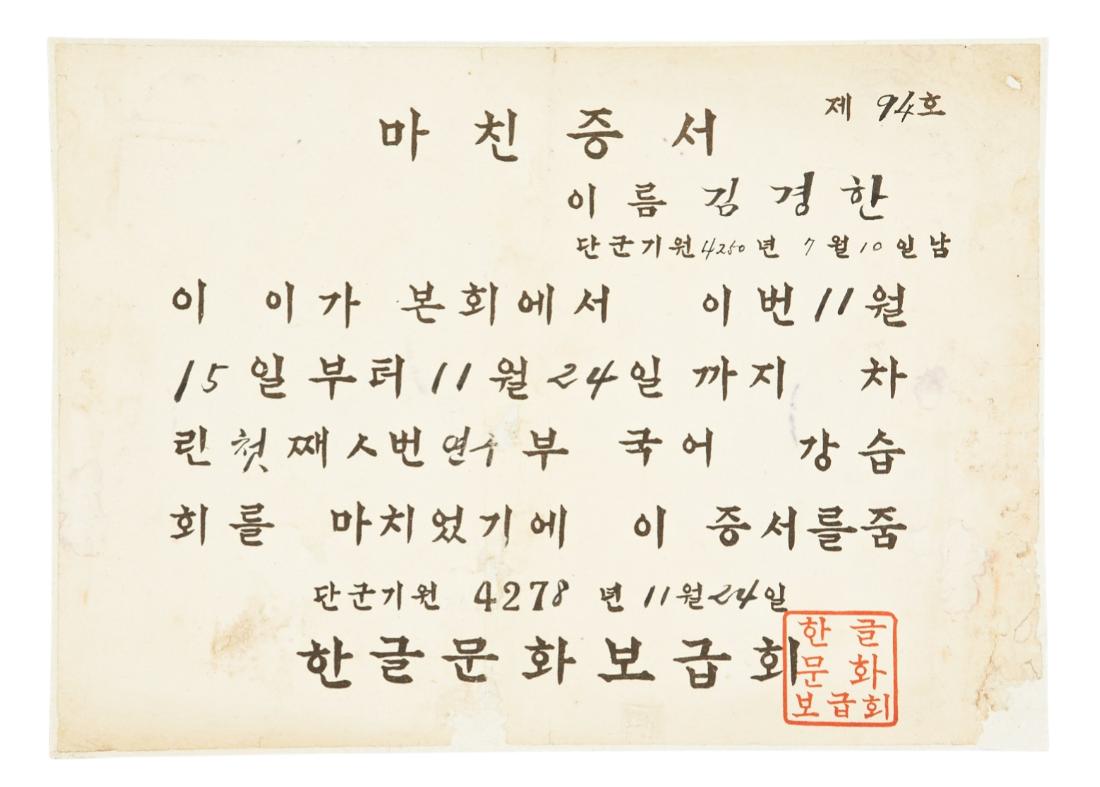 제 94호
마친증서
이름 김경한
단군기원 4250년 7월 10일 남
이 이가 본회에서 이번 11월
15일부터 11월 24일까지 차
린 첫째 번 연수부 국어 강습
회를 마치었기에 이 증서를 줌
단군기원 4278년 11월 24일
한글문화보급회
한글
문화
보급회